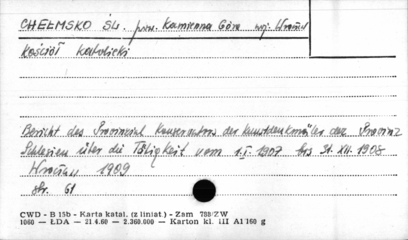 CHEŁMSKO ŚL. pow. Kamienna Góra woj. Wrocł.
Kościół katolicki
Bericht des Provinzial Konservators der Kunstdenkmäler der Provinz
Schlesien über die Tätigkeit vom 1.I.1907 bis 31.XII.1908
Wrocław 1909
str. 61
CWD - B 15b - Karta katal. (z liniat.) - Zam 788/ZW
1060 — ŁDA — 21.4.60 — 2.360.000 — Karton kl. III A1/160 g